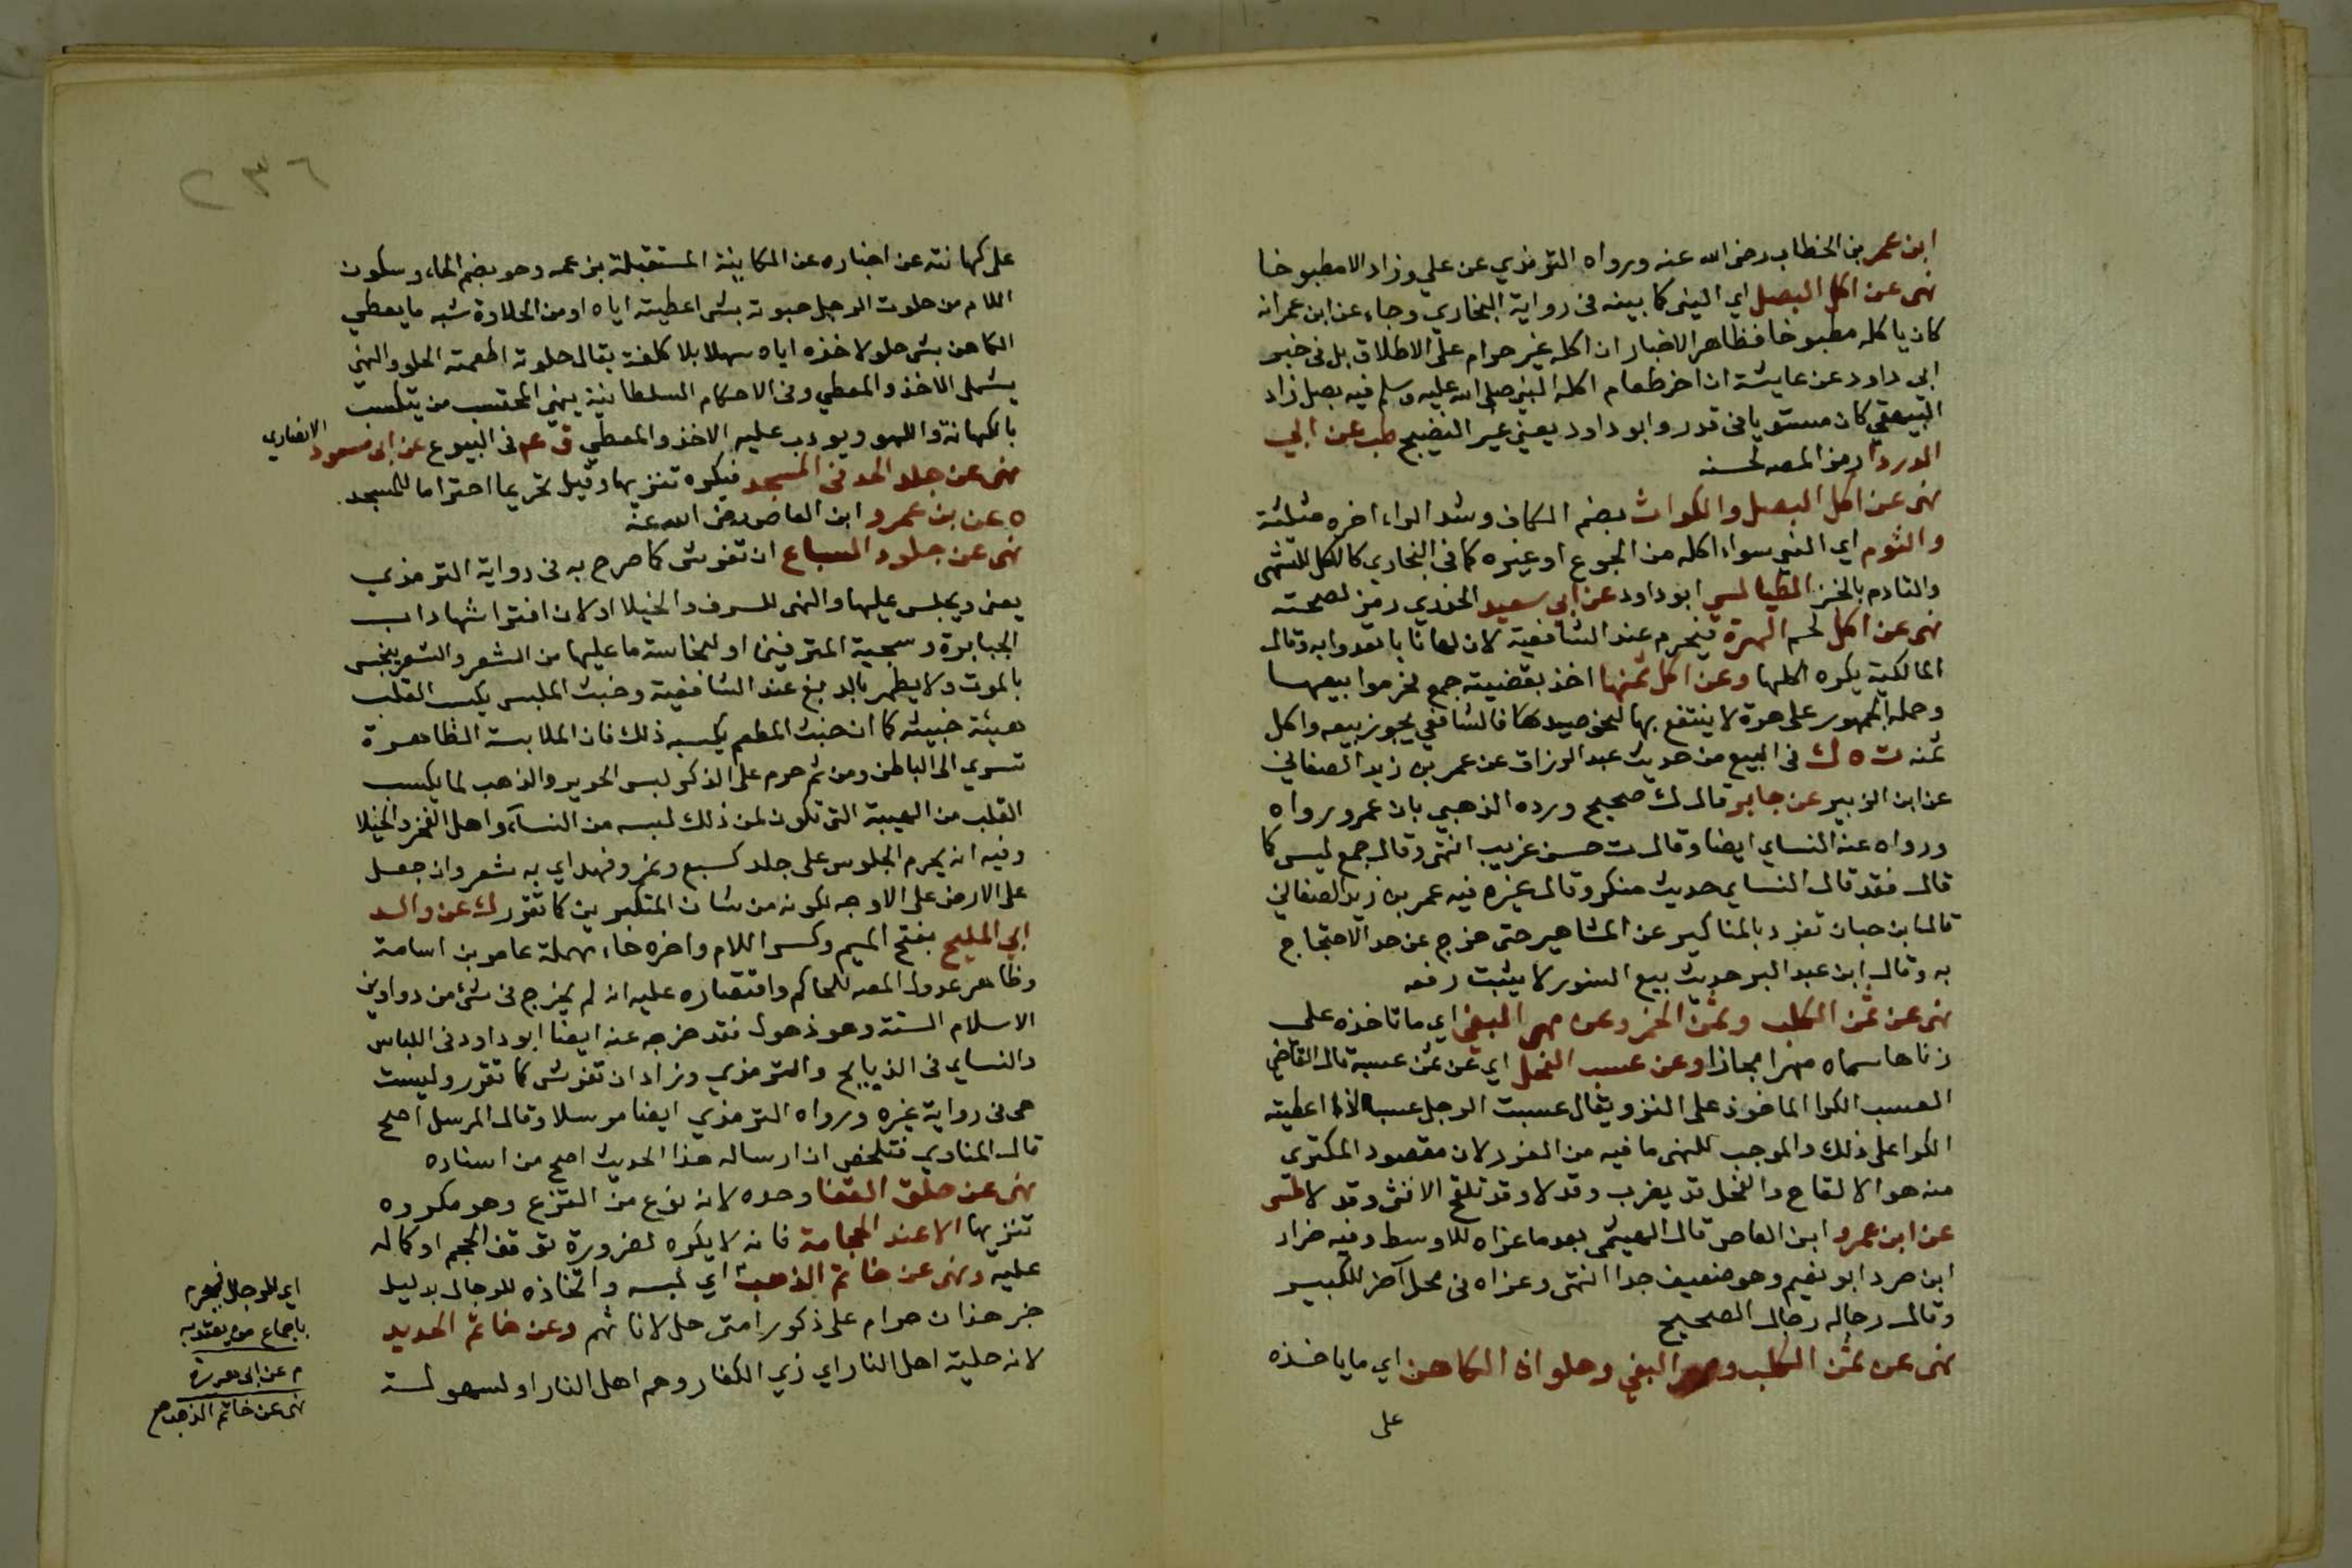 ابن عمر بن الخطاب رضى الله عنه ورواه الترمذي عن علي وزاد الا مطبوخا
نهى عن اكل البصل اي النيى كما بينه فى رواية البخاري وجاء عن ابن عمر انه
كان ياكله مطبوخا فظاهر الاخبار ان اكله غير حرام على الاطلاق بل فى خبر
ابي داود عن عايشة ان اخر طعام اكله النبي صلى الله عليه وسلم فيه بصل زاد
البيهقي كان مستويا فى قدر وابو داود يعني غير النضيج طب عن ابي
الدرداء رمز المصه لحسنه
نهى عن اكل البصل والكراث بضم الكاف وشد الراء اخره مثلثة
والثوم اي النيى سواء اكله من الجوع او غيره كما فى البخاري كالاكل للتشهى
والتادم بالخبز الطيالسي ابو داود عن ابي سعيد الخدري رمز لصحته
نهى عن اكل لحم الهرة فيحرم عند الشافعية لان لها نابا تعدوا به وقال
المالكية يكره اكلها وعن اكل ثمنها اخذ بقضيته جمع فحرموا بيعها
وحمله الجمهور على هرة لا ينتفع بها لنحو صيد هكا فالشافعي يجوز بيعه واكل
ثمنه ت ه ك فى البيع من حديث عبد الرزاق عن عمر بن زيد الصنعاني
عن ابن الزبير عن جابر قال ك صحيح ورده الذهبي بان عمرو رواه
ورواه عنه النساي ايضا وقال ت حسن غريب انتهى وقال جمع ليس كما
قال فقد قال النساي حديث منكر وقال غيره فيه عمر بن زيد الصنعاني
قال ابن حبان تفرد بالمناكير عن المشاهير حتى خرج عن حد الاحتجاج
به وقال ابن عبد البر حديث بيع السنور لا يثبت رفعه
نهى عن ثمن الكلب وثمن الخمر وعن مهر البغي اي ما تاخذه على
زناها سماه مهرا مجازا وعن عسب الفحل اي عن ثمن عسبه قال القاضي
العسب الكرا الماخوذ على النزو يقال عسبت الرجل عسبا اذا اعطيته
الكرا على ذلك والموجب للنهى ما فيه من الغرر لان مقصود المكترى
منه هو الالقاح والفحل قد يضرب وقد لا وقد تلقح الانثى وقد لا طس
عن ابن عمرو ابن العاص قال الهيثمى بعد ما عزاه للاوسط وفيه ضرار
ابن صرد ابو نعيم وهو ضعيف جدا انتهى وعزاه فى محل آخر للكبير
وقال رجاله رجال الصحيح
نهى عن ثمن الكلب ومهر البغي وحلوان الكاهن اي ما ياخذه
على
٢٣٦
على كهانته عن اخباره عن الكاينة المستقبلة بزعمه وهو بضم الحاء وسكون
اللام من حلوت الرجل حبوته بشى اعطيته اياه او من الحلاوة شبه ما يعطي
الكاهن بشى حلو لاخذه اياه سهلا بلا كلفة يقال حلوته اطعمته الحلو والنهى
يشمل الاخذ والمعطي وفى الاحكام السلطانية ينهى المحتسب من يتكسب
بالكهانة واللهو ويودب عليه الاخذ والمعطي ق عم فى البيوع عن ابى مسعود الانصاري
نهى عن جلد الحد فى المسجد فيكره تنزيها وقيل تحريما احتراما للمسجد
ه عن بن عمرو ابن العاص رضى الله عنه
نهى عن جلود السباع ان تفرش كما صرح به فى رواية الترمذي
يعنى ويجلس عليها والنهى للسرف والخيلا او لان افتراشها داب
الجبابرة وسجية المترفين او لنجاسة ما عليها من الشعر والشعر ينجس
بالموت ولا يطهر بالدبغ عند الشافعية وخبث الملبس يكسب القلب
هيئة خبيثه كما ان خبث المطعم يكسبه ذلك فان الملابسة الظاهرة
تسري الى الباطن ومن ثم حرم على الذكر لبس الحرير والذهب لما يكسب
القلب من الهيبة التى تكون لمن ذلك لبسه من النسآء واهل الفخر والخيلا
وفيه انه يحرم الجلوس على جلد كسبع ونمر وفهد اي به شعر وان جعل
على الارض على الاوجه لكونه من شان المتكبرين كما تقرر ك عن والد
ابي المليح بفتح الميم وكسر اللام واخره خاء مهملة عامر بن اسامة
وظاهر عدول المصه للحاكم واقتصاره عليه انه لم يخرج فى شئ من دواوين
الاسلام الستة وهو ذهول فقد خرجه عنه ايضا ابو داود فى اللباس
والنساي فى الذبايح والترمذي وزاد ان تفرش كما تقرر وليست
هى فى رواية غيره ورواه الترمذي ايضا مرسلا وقال المرسل اصح
قال المناوي فتلخص ان ارسال هذا الحديث اصح من اسناده
نهى عن حلق القفا وحده لانه نوع من القزع وهو مكروه
تنزيها الا عند الحجامة فانه لا يكره لضرورة توقف الحجم او كماله
عليه ونهى عن خاتم الذهب اي لبسه واتخاذه للرجال بدليل
خبر هذان حرام على ذكور امتى حل لاناثهم وعن خاتم الحديد
لانه حلية اهل النار اي زي الكفار وهم اهل النار او لسهولة
اي للرجال فيحرم
باجماع من يعتد به
م عن ابى هريرة
نهى عن خاتم الذهب صح